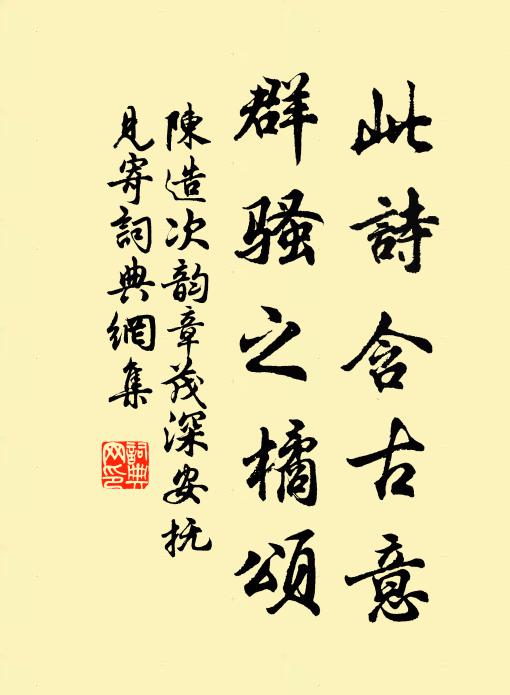 此詩含古意
群骚之橘頌
陳造次韵章茂深安抚
見寄詞典網集
詞典網印